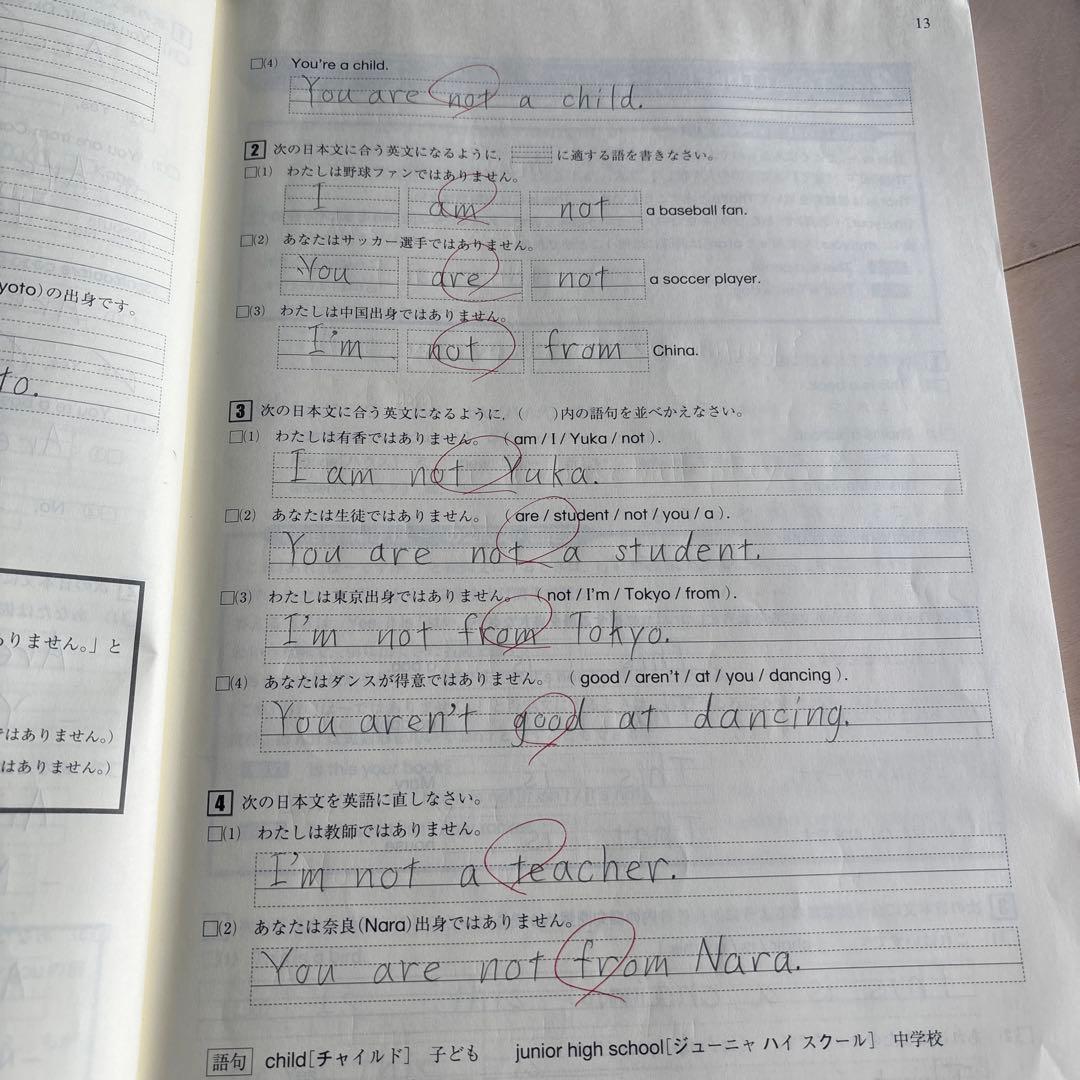 13
□(4) You're a child.
You are not a child.
2 次の日本文に合う英文になるように, に適する語を書きなさい。
□(1) わたしは野球ファンではありません。
I am not a baseball fan.
□(2) あなたはサッカー選手ではありません。
You are not a soccer player.
□(3) わたしは中国出身ではありません。
I'm not from China.
3 次の日本文に合う英文になるように, ( )内の語句を並べかえなさい。
□(1) わたしは有香ではありません。 ( am / I / Yuka / not ).
I am not Yuka.
□(2) あなたは生徒ではありません。 ( are / student / not / you / a ).
You are not a student.
□(3) わたしは東京出身ではありません。 ( not / I'm / Tokyo / from ).
I'm not from Tokyo.
□(4) あなたはダンスが得意ではありません。 ( good / aren't / at / you / dancing ).
You aren't good at dancing.
4 次の日本文を英語に直しなさい。
□(1) わたしは教師ではありません。
I'm not a teacher.
□(2) あなたは奈良(Nara)出身ではありません。
You are not from Nara.
語句 child[チャイルド] 子ども junior high school[ジューニャ ハイ スクール] 中学校
yoto)の出身です。
to.
ありません。」と
ではありません。)
はありません。)